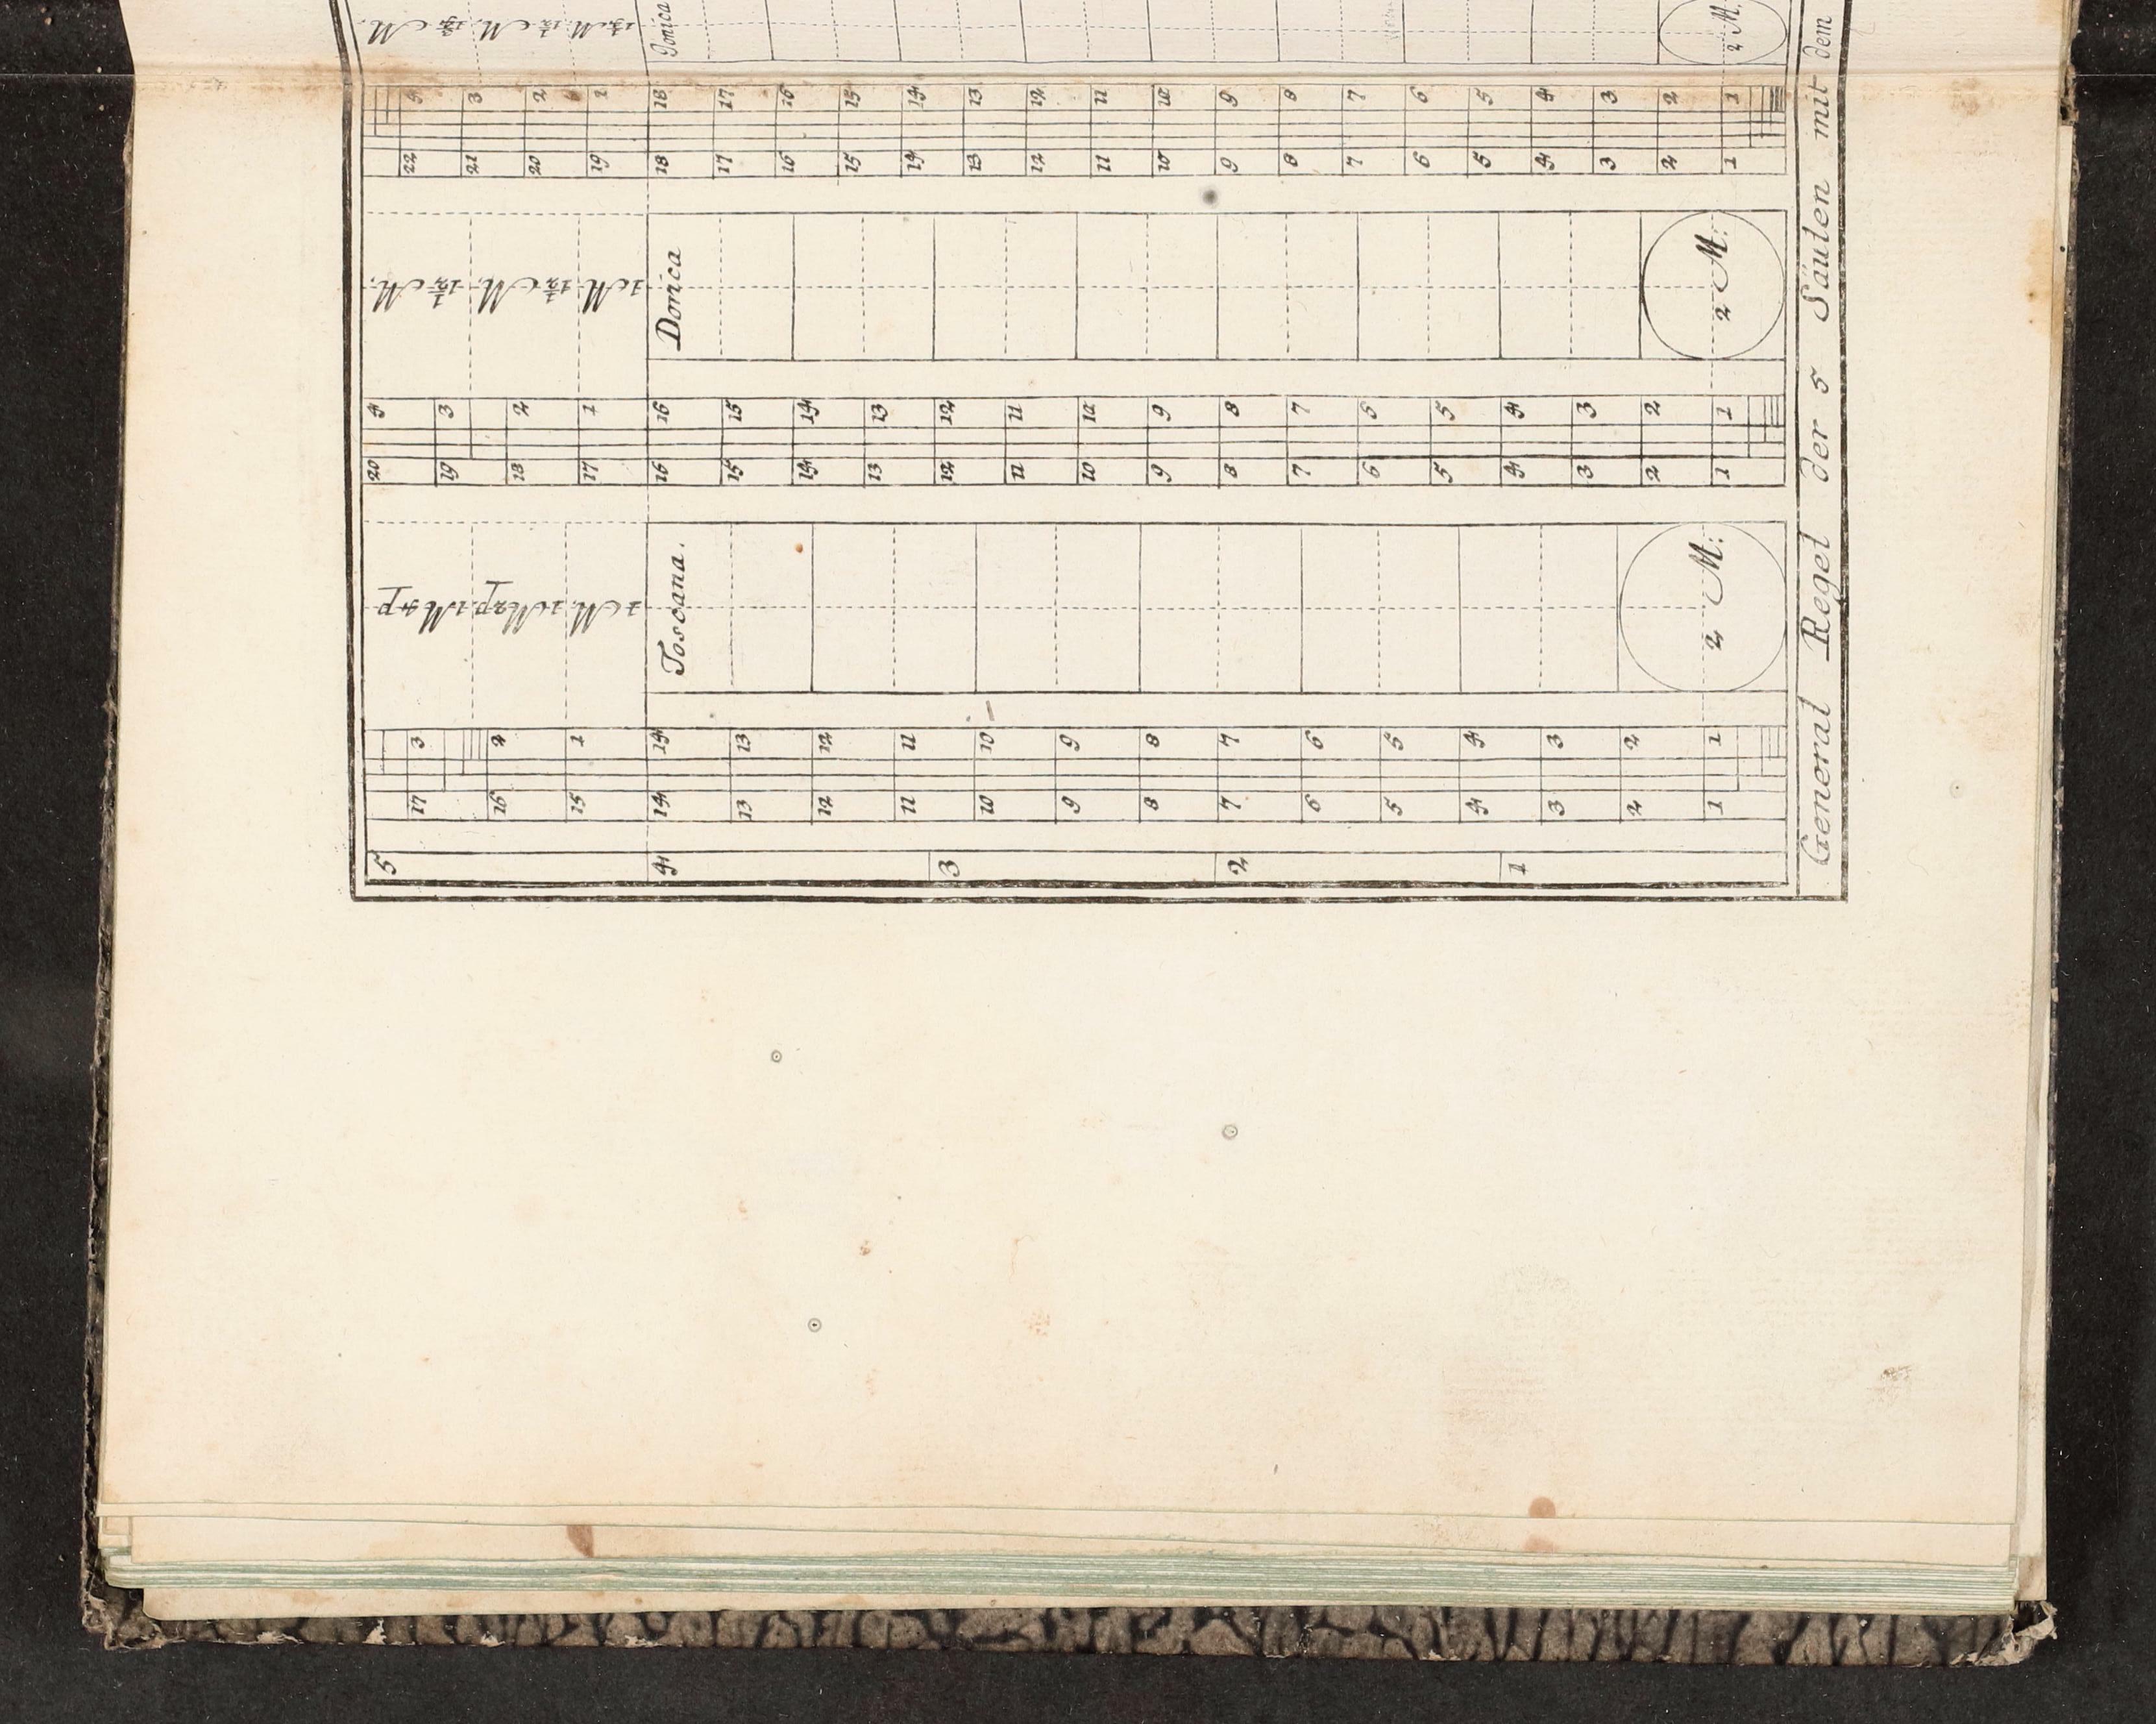 5
4
3
2
1
17 16 15 14 13 12 11 10 9 8 7 6 5 4 3 2 1
3 2 1 14 13 12 11 10 9 8 7 6 5 4 3 2 1
Toscana.
2 M:
20 19 18 17 16 15 14 13 12 11 10 9 8 7 6 5 4 3 2 1
4 3 2 1 16 15 14 13 12 11 10 9 8 7 6 5 4 3 2 1
Dorica
2 M:
22 21 20 19 18 17 16 15 14 13 12 11 10 9 8 7 6 5 4 3 2 1
4 3 2 1 18 17 16 15 14 13 12 11 10 9 8 7 6 5 4 3 2 1
Ionica
2 M:
General Regel der 5 Säulen mit dem